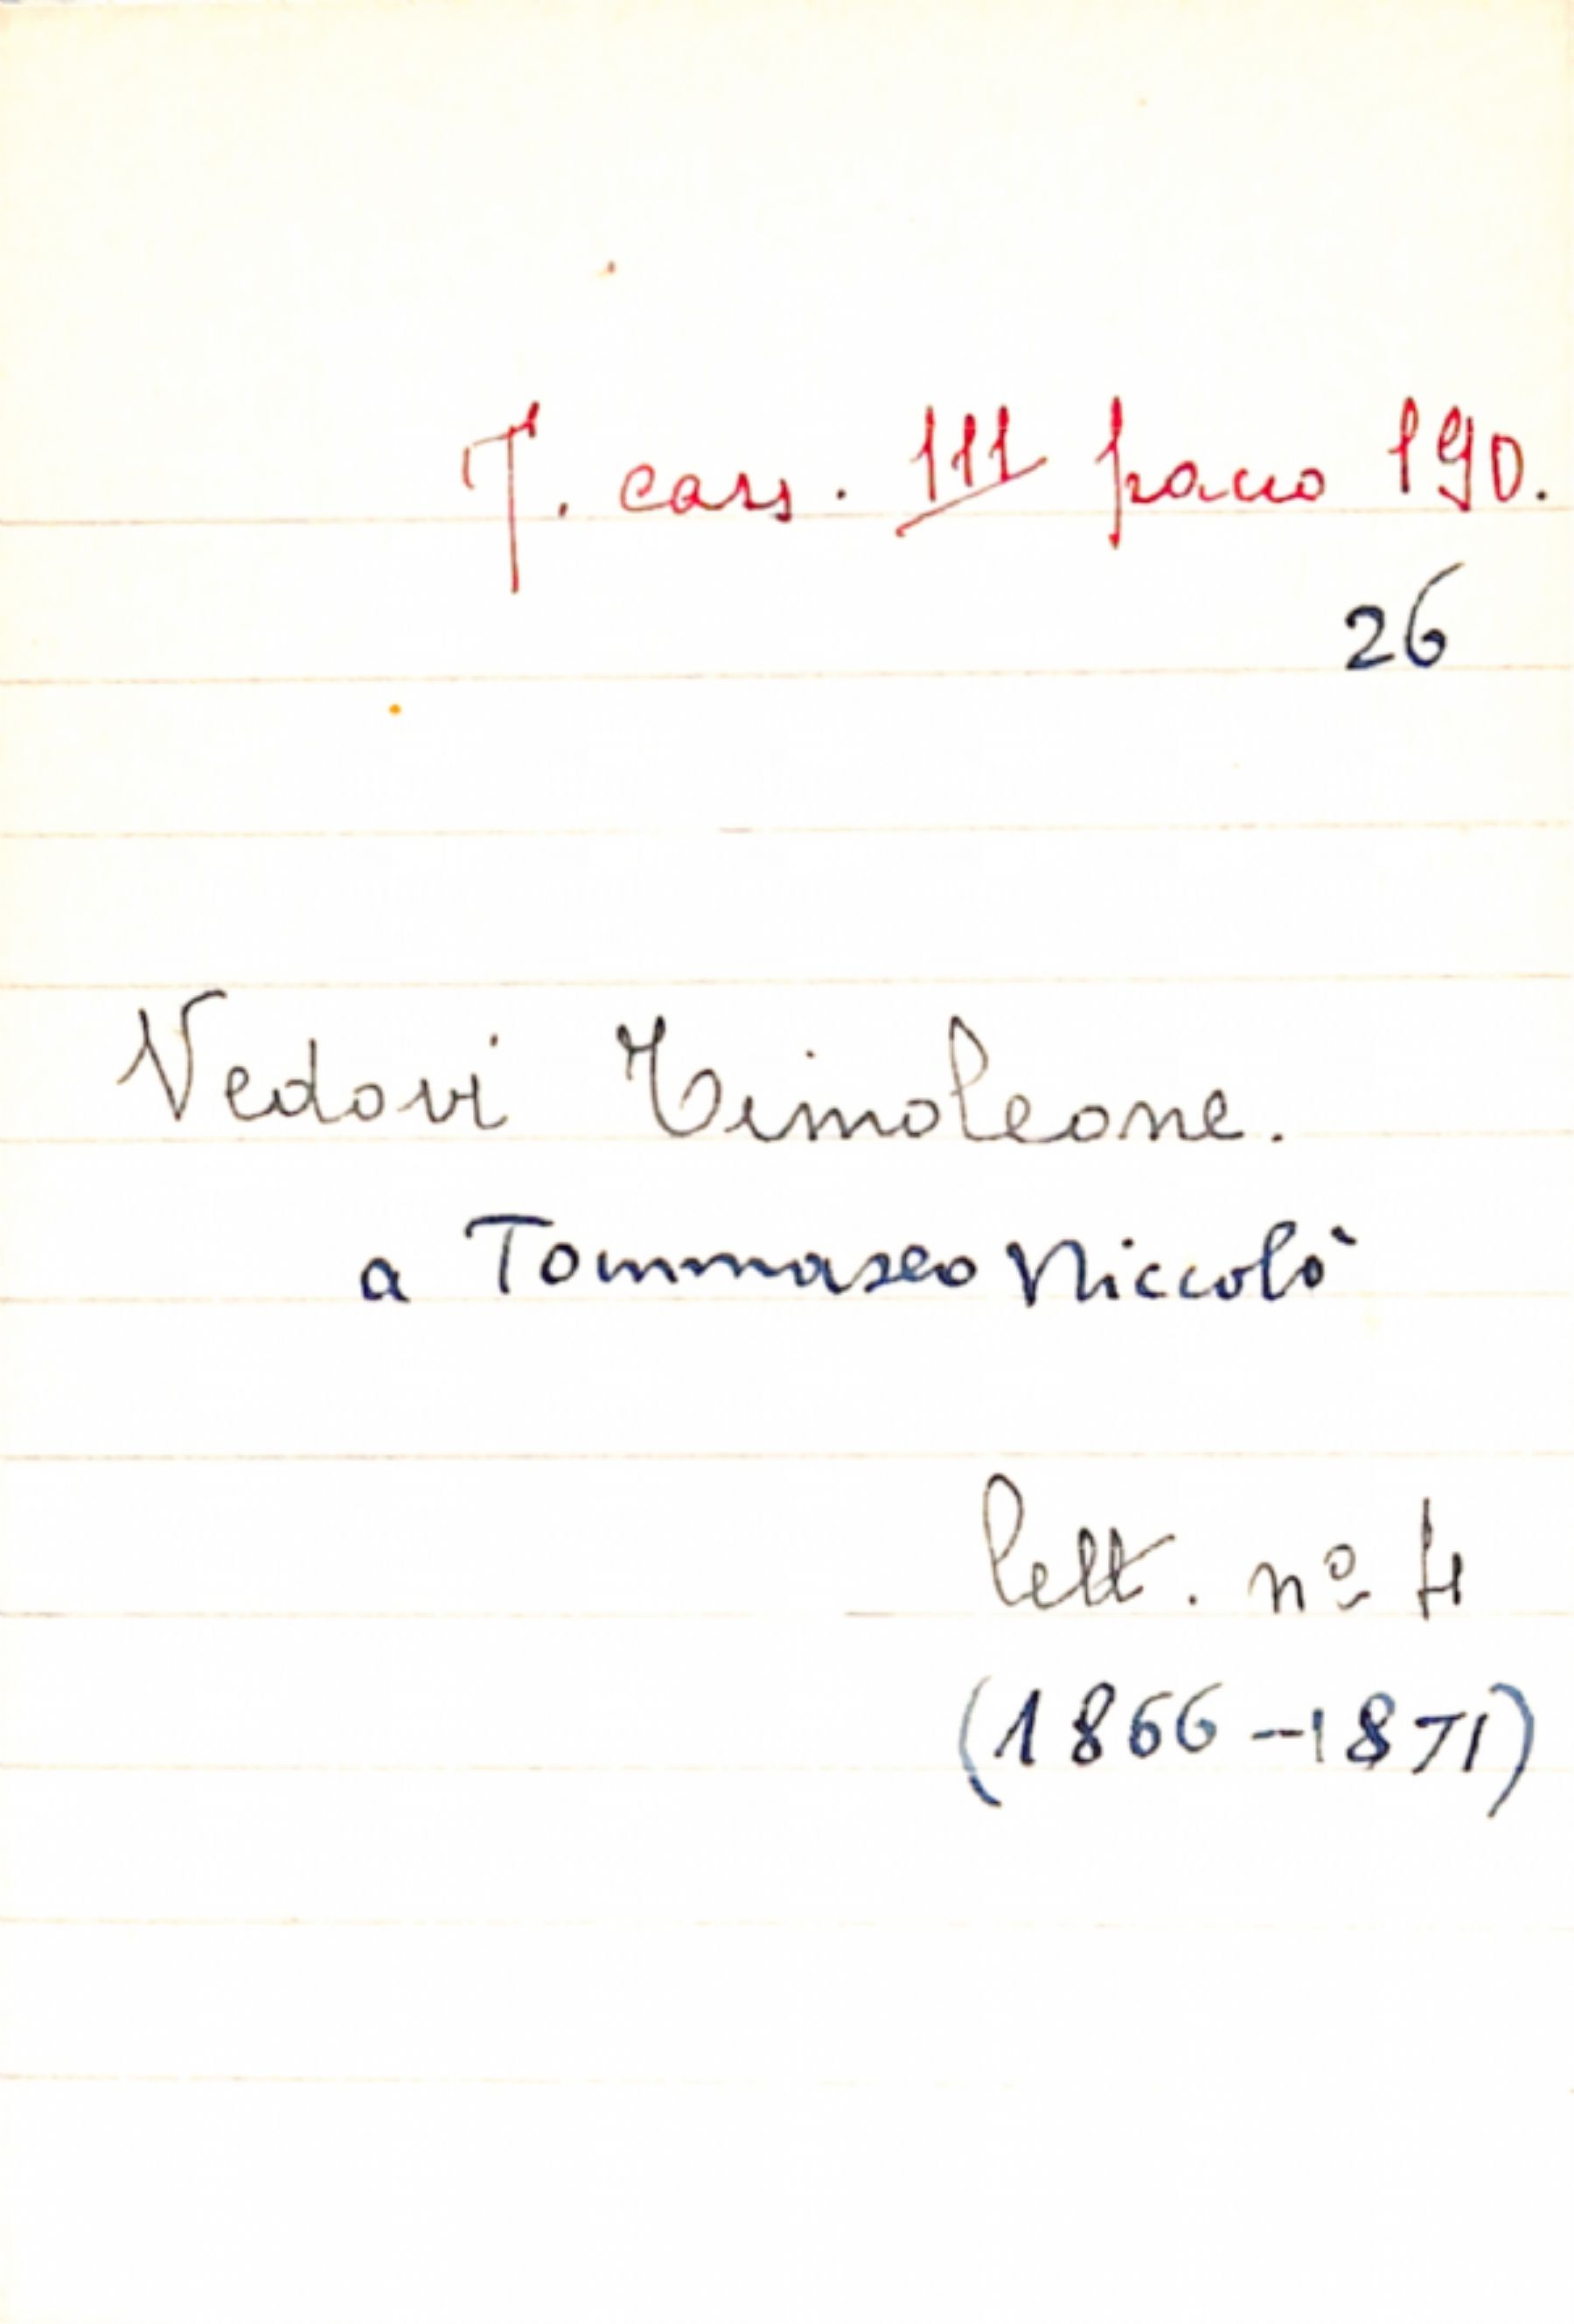 T. cass. 111 pacco 190.
26
Vedovi Timoleone.
a Tommaseo Niccolò
lett. nº 4
(1866-1871)